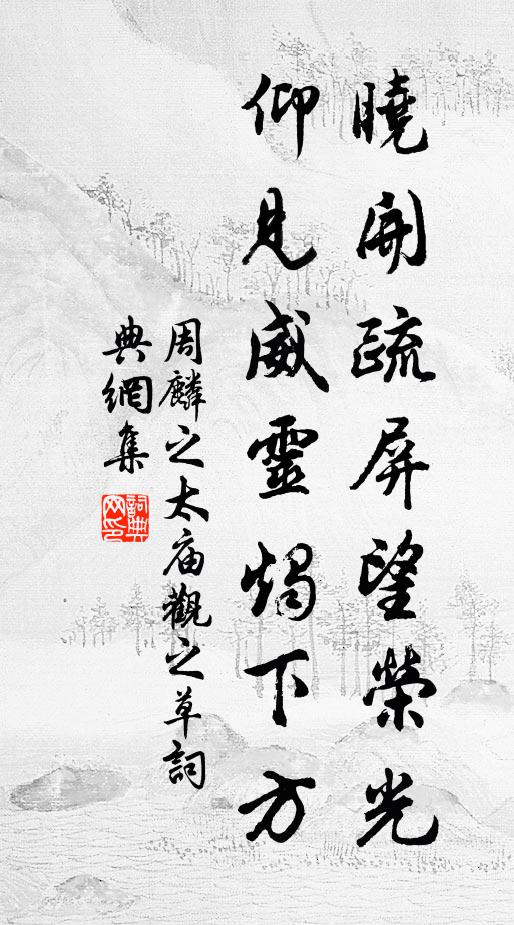 曉開疏屏望榮光
仰見威靈燭下方
周麟之太庙觀之草詞
典網集
詞典网印